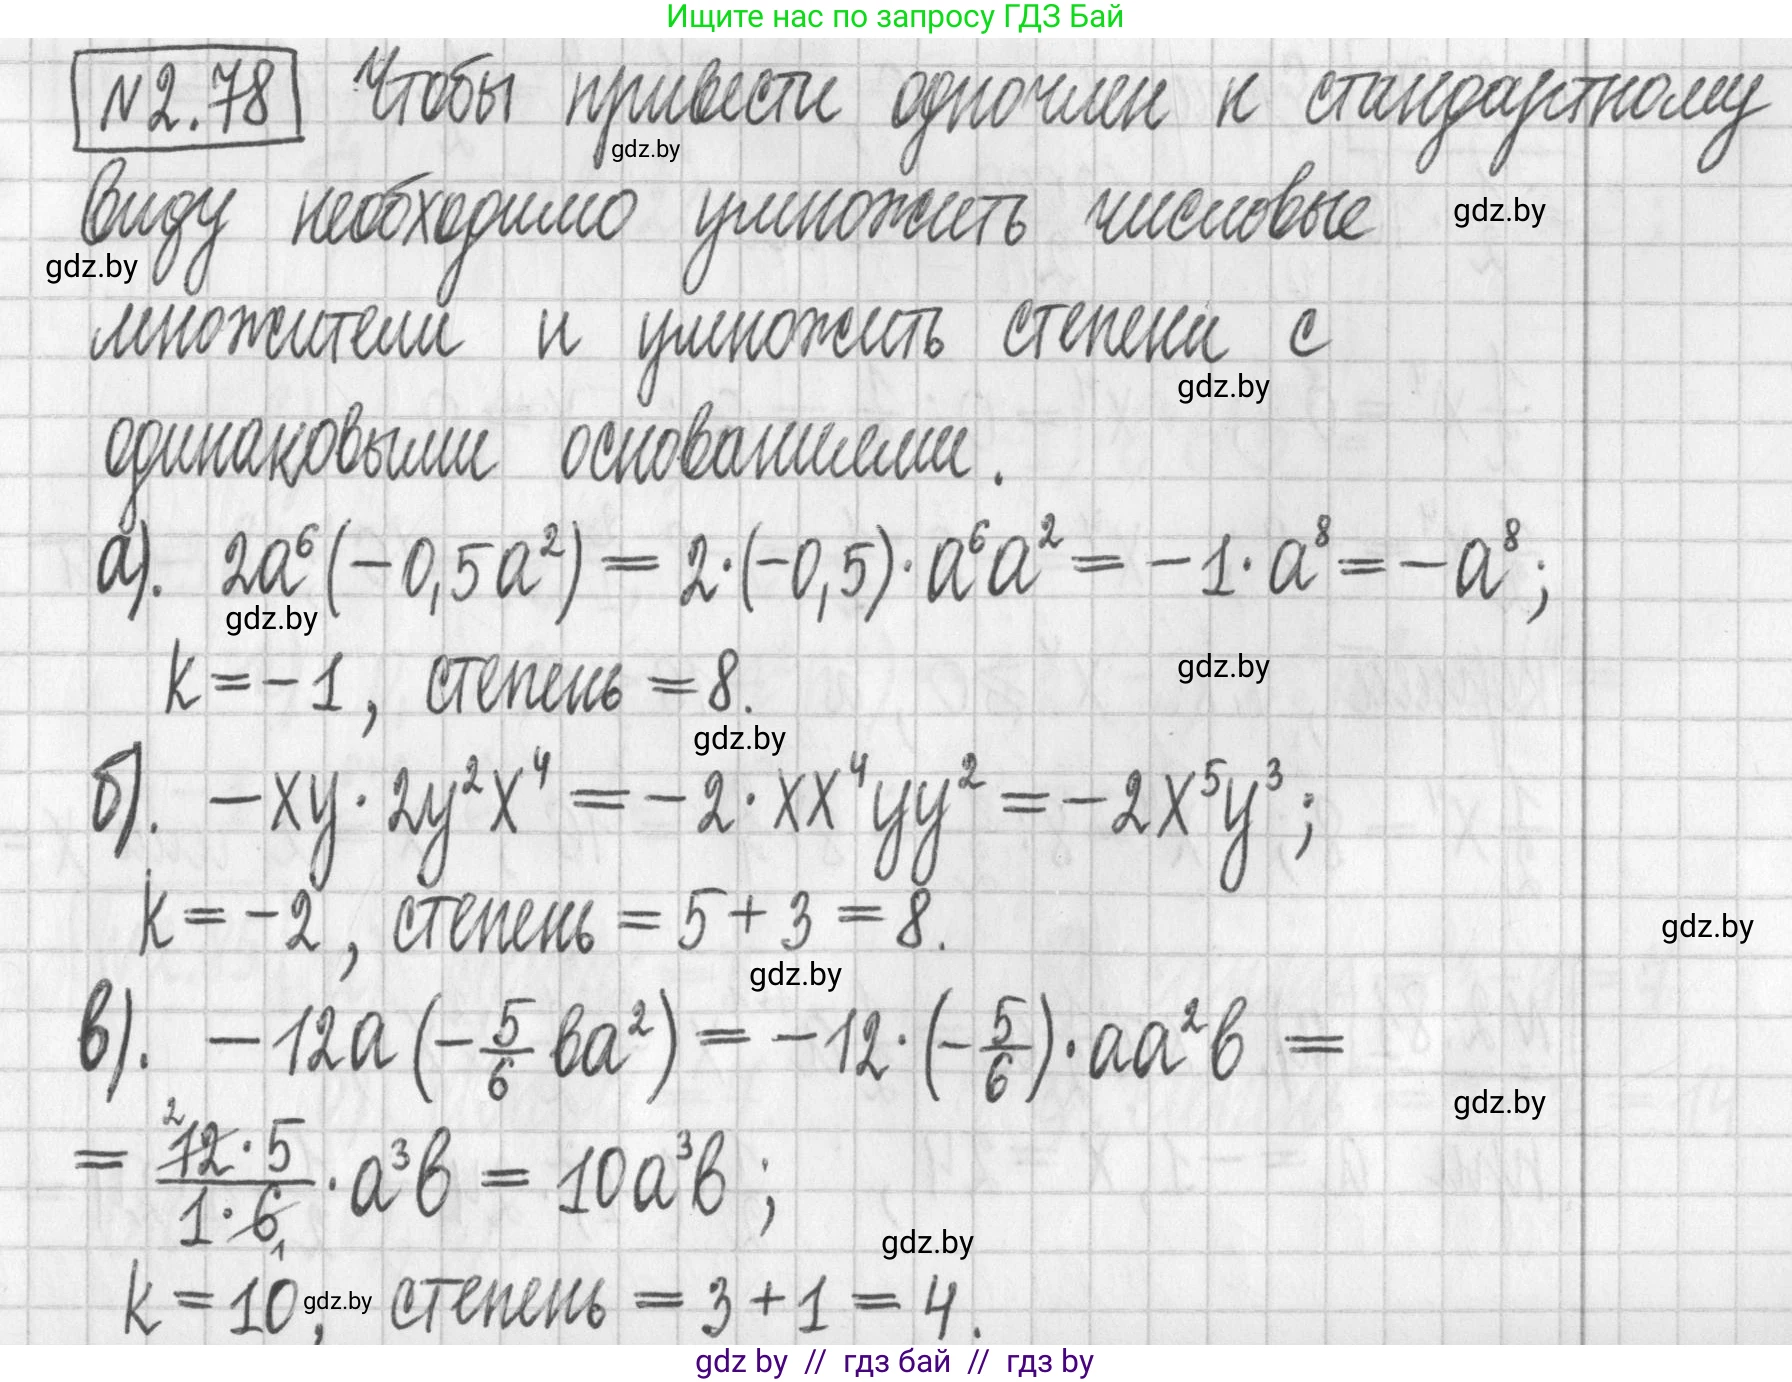 Ищите нас по запросу ГДЗ Бай
N2.78 Чтобы привести одночлен к стандартному
gdz.by
виду необходимо умножить числовые
gdz.by
gdz.by
множители и умножить степени с
gdz.by
одинаковыми основаниями.
а). 2a⁶(−0,5a²) = 2·(−0,5)·a⁶a² = −1·a⁸ = −a⁸;
gdz.by
k = −1, степень = 8.
gdz.by
gdz.by
б). −xy·2y²x⁴ = −2·xx⁴yy² = −2x⁵y³;
k = −2, степень = 5 + 3 = 8.
gdz.by
gdz.by
в). −12a(−5/6 ba²) = −12·(−5/6)·aa²b =
gdz.by
= 12·5/1·6 · a³b = 10a³b;
2
1
gdz.by
k = 10, степень = 3 + 1 = 4.
gdz.by
gdz by // гдз бай // гдз by